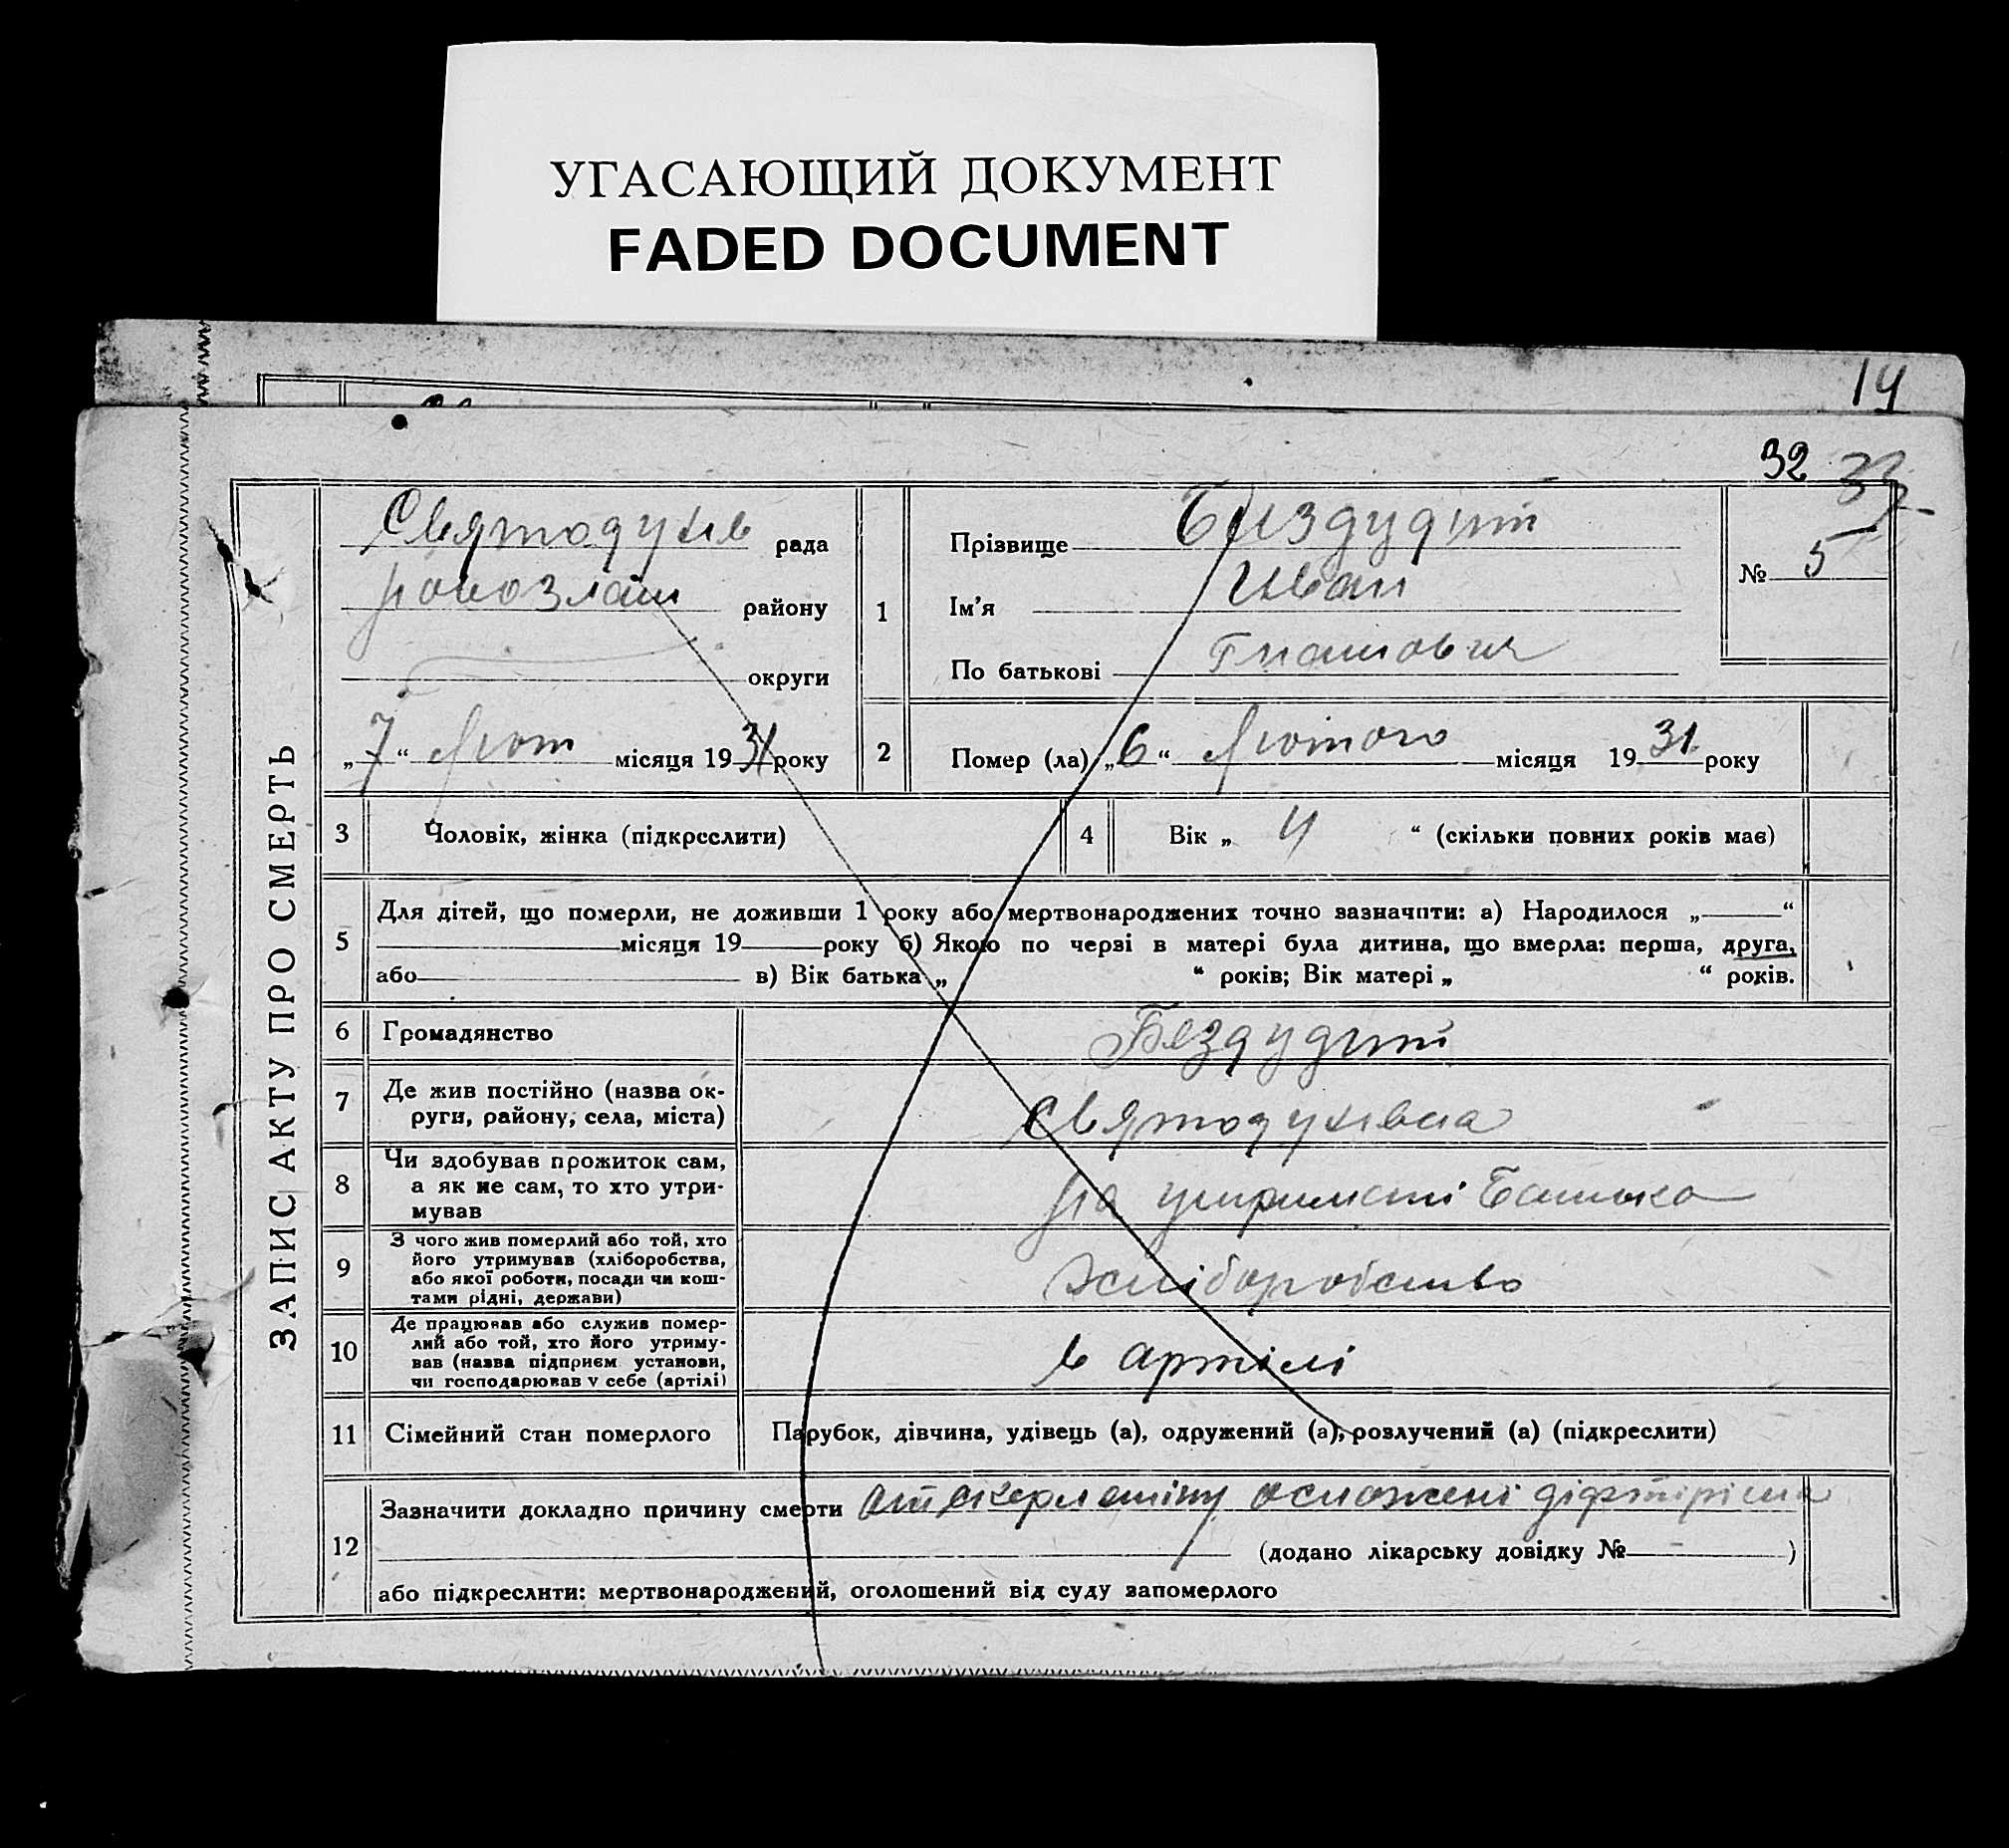 УГАСАЮЩИЙ ДОКУМЕНТ
FADED DOCUMENT
14
32 33
ЗАПИС АКТУ ПРО СМЕРТЬ
Святодухів рада
району
округи
„7“ Лют місяця 1931 року
1
Прізвище Биздудний
Ім'я Иван
По батькові
№ 5
2
Помер (ла) „6“ Лютого місяця 1931 року
3 Чоловік, жінка (підкреслити)
4 Вік „ 4 “ (скільки повних років має)
5 Для дітей, що померли, не доживши 1 року або мертвонароджених точно зазначити: а) Народилося „ “
місяця 19 року б) Якою по черзі в матері була дитина, що вмерла: перша, друга,
або в) Вік батька „ “ років; Вік матері „ “ років.
6 Громадянство Бездудний
7 Де жив постійно (назва ок-
руги, району, села, міста) Святодухівка
8 Чи здобував прожиток сам,
а як не сам, то хто утри-
мував
на утримані Батька
9 З чого жив померлий або той, хто
його утримував (хліборобства,
або якої роботи, посади чи кош-
тами рідні, держави)
хліборобство
10 Де працював або служив помер-
лий або той, хто його утриму-
вав (назва підприєм установи,
чи господарював у себе (артілі)
в артілі
11 Сімейний стан померлого Парубок, дівчина, удівець (а), одружений (а), розлучений (а) (підкреслити)
12 Зазначити докладно причину смерти от скерлетіну
(додано лікарську довідку № )
або підкреслити: мертвонароджений, оголошений від суду запомерлого